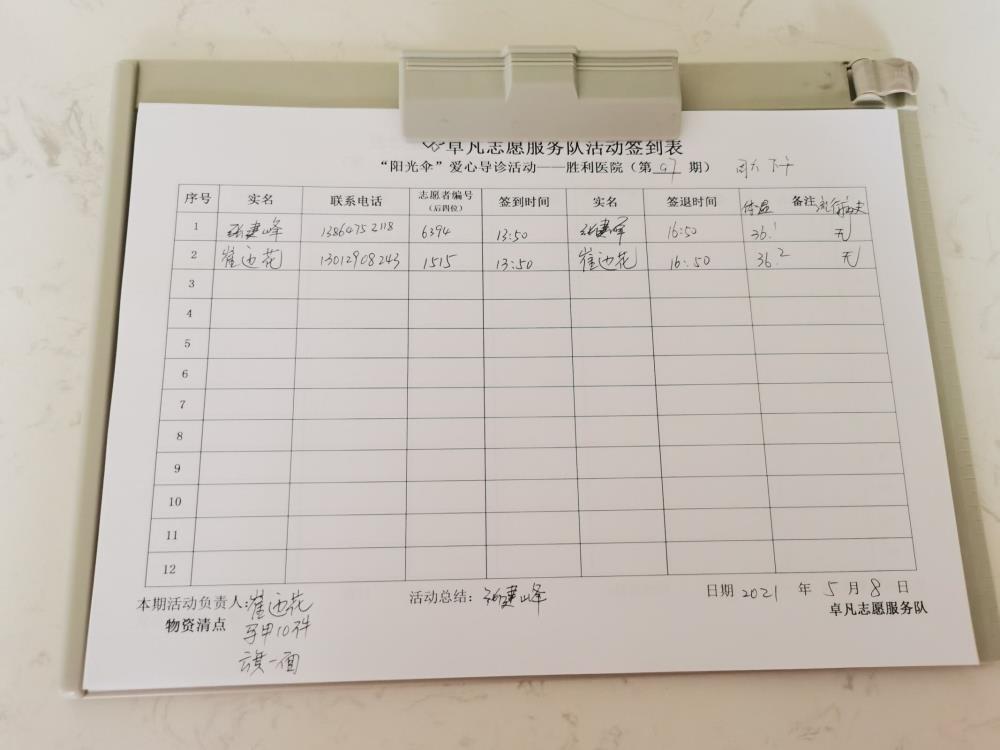 卓凡志愿服务队活动签到表
“阳光伞”爱心导诊活动——胜利医院（第97期）
序号 实名 联系电话 志愿者编号（后四位） 签到时间 实名 签退时间 体温 备注 流行病史
1 张建峰 13864752118 6394 13:50 张建峰 16:50 36.1 无
2 崔迎花 13012908243 1515 13:50 崔迎花 16:50 36.2 无
3
4
5
6
7
8
9
10
11
12
本期活动负责人:崔迎花 活动总结：张建峰 日期 2021 年 5 月 8 日
物资清点 马甲10件 卓凡志愿服务队
一面